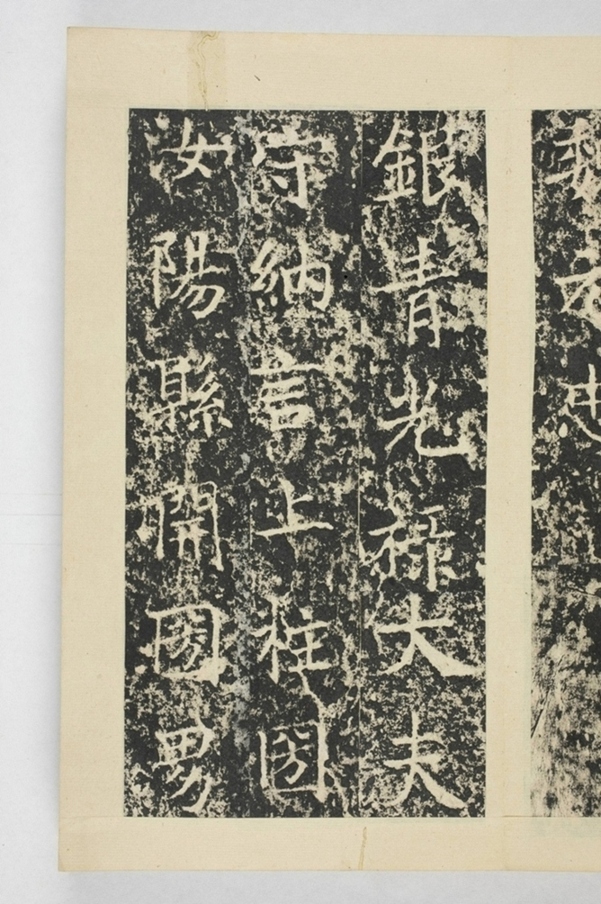 銀青光祿大夫
守納言上柱圀
汝陽縣開圀男